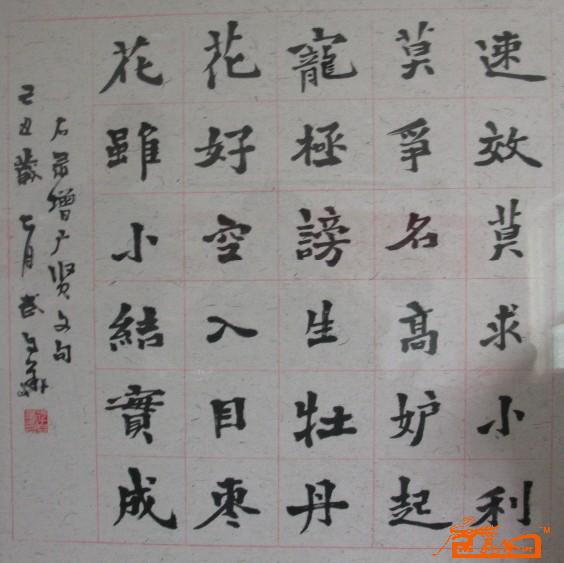 速效莫求小利
莫爭名高妒起
寵極謗生牡丹
花好空入目棗
花雖小結實成
右录增广贤文句
己丑歲七月